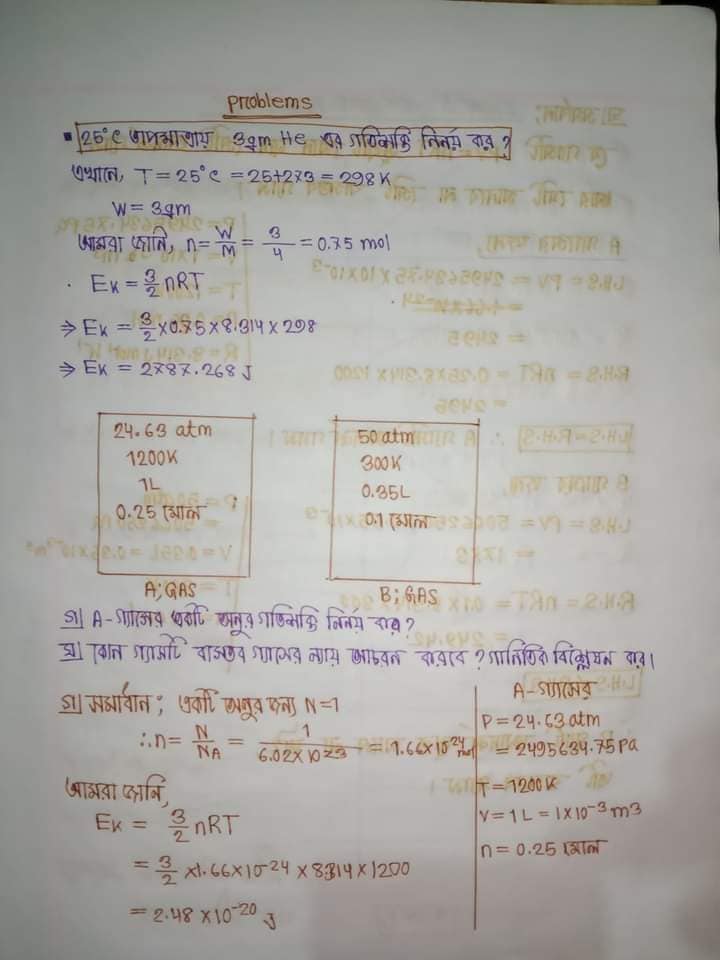 Problems
▪ 25°C তাপমাত্রায় 3gm He এর গতিশক্তি নির্নয় কর ?
এখানে, T = 25°C = 25+273 = 298K
W = 3gm
আমরা জানি, n = W/M = 3/4 = 0.75 mol
. EK = 3/2 nRT
⇒ EK = 3/2 ×0.75 × 8.314 × 298
⇒ EK = 2787.268 J
24.63 atm
1200K
1L
0.25 মোল
A; GAS
50 atm
300K
0.35L
0.1 মোল
B; GAS
গ| A-গ্যাসের একটি অনুর গতিশক্তি নির্নয় কর ?
ঘ| কোন গ্যাসটি বাস্তব গ্যাসের ন্যায় আচরন করবে ? গানিতিক বিশ্লেষন কর।
গ| সমাধান ; একটি অনুর জন্য N=1
∴n = N/NA = 1/6.02×10 23 = 1.66×10 24 mol
আমরা জানি,
EK = 3/2 nRT
= 3/2 ×1.66×10-24 × 8314 × 1200
= 2.48 ×10-20 J
A-গ্যাসের
P = 24.63 atm
= 2495634.75 Pa
T = 1200K
V = 1L = 1×10-3 m3
n = 0.25 মোল